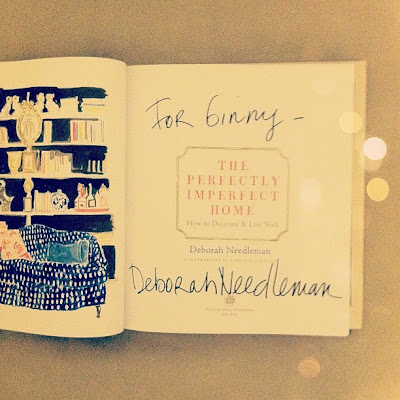 For Ginny –
THE
PERFECTLY
IMPERFECT
HOME
How to Decorate & Live Well
Deborah Needleman
Deborah Needleman